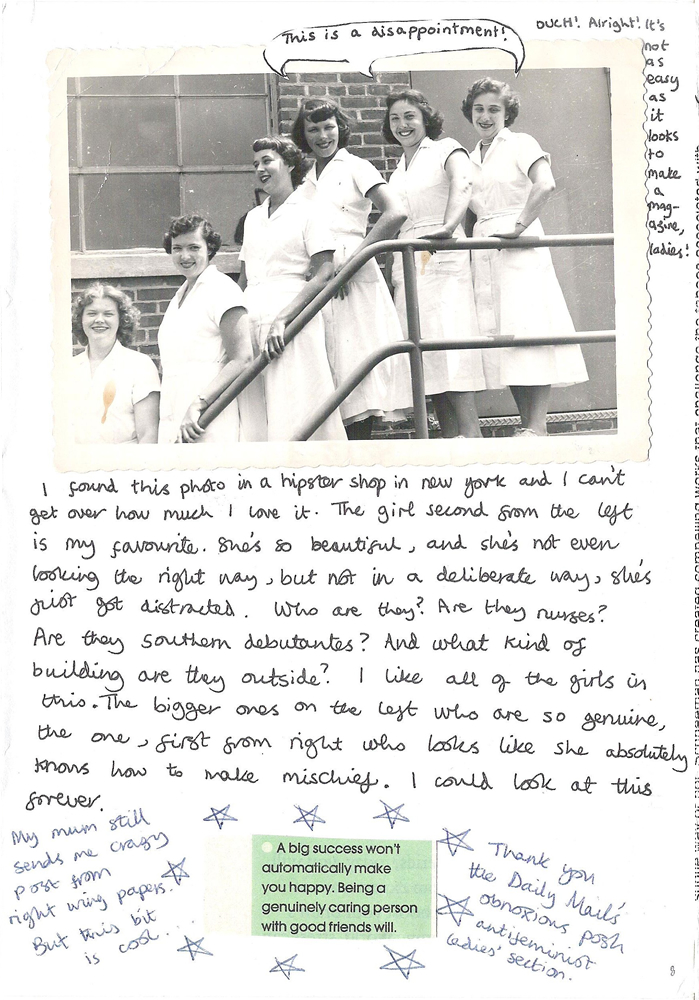 This is a disappointment!
OUCH! Alright! It's
not
as
easy
as
it
looks
to
make
a
mag-
azine,
ladies!
I found this photo in a hipster shop in new york and I can't
get over how much I love it. The girl second from the left
is my favourite. She's so beautiful, and she's not even
looking the right way, but not in a deliberate way, she's
just got distracted. Who are they? Are they nurses?
Are they southern debutantes? And what kind of
building are they outside? I like all of the girls in
this. The bigger ones on the left who are so genuine,
the one, first from right who looks like she absolutely
knows how to make mischief. I could look at this
forever.
My mum still
sends me crazy
post from
right wing papers.
But this bit
is cool...
A big success won't
automatically make
you happy. Being a
genuinely caring person
with good friends will.
Thank you
the Daily Mail's
obnoxious posh
antifeminist
ladies' section.
8